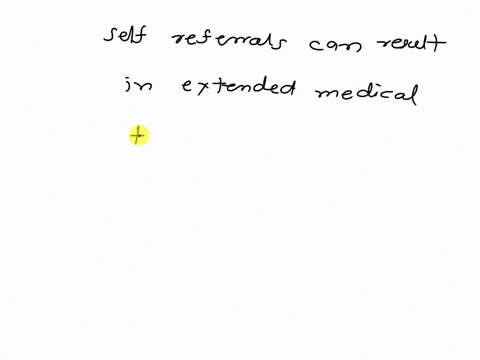 self referrals can result
in extended medical